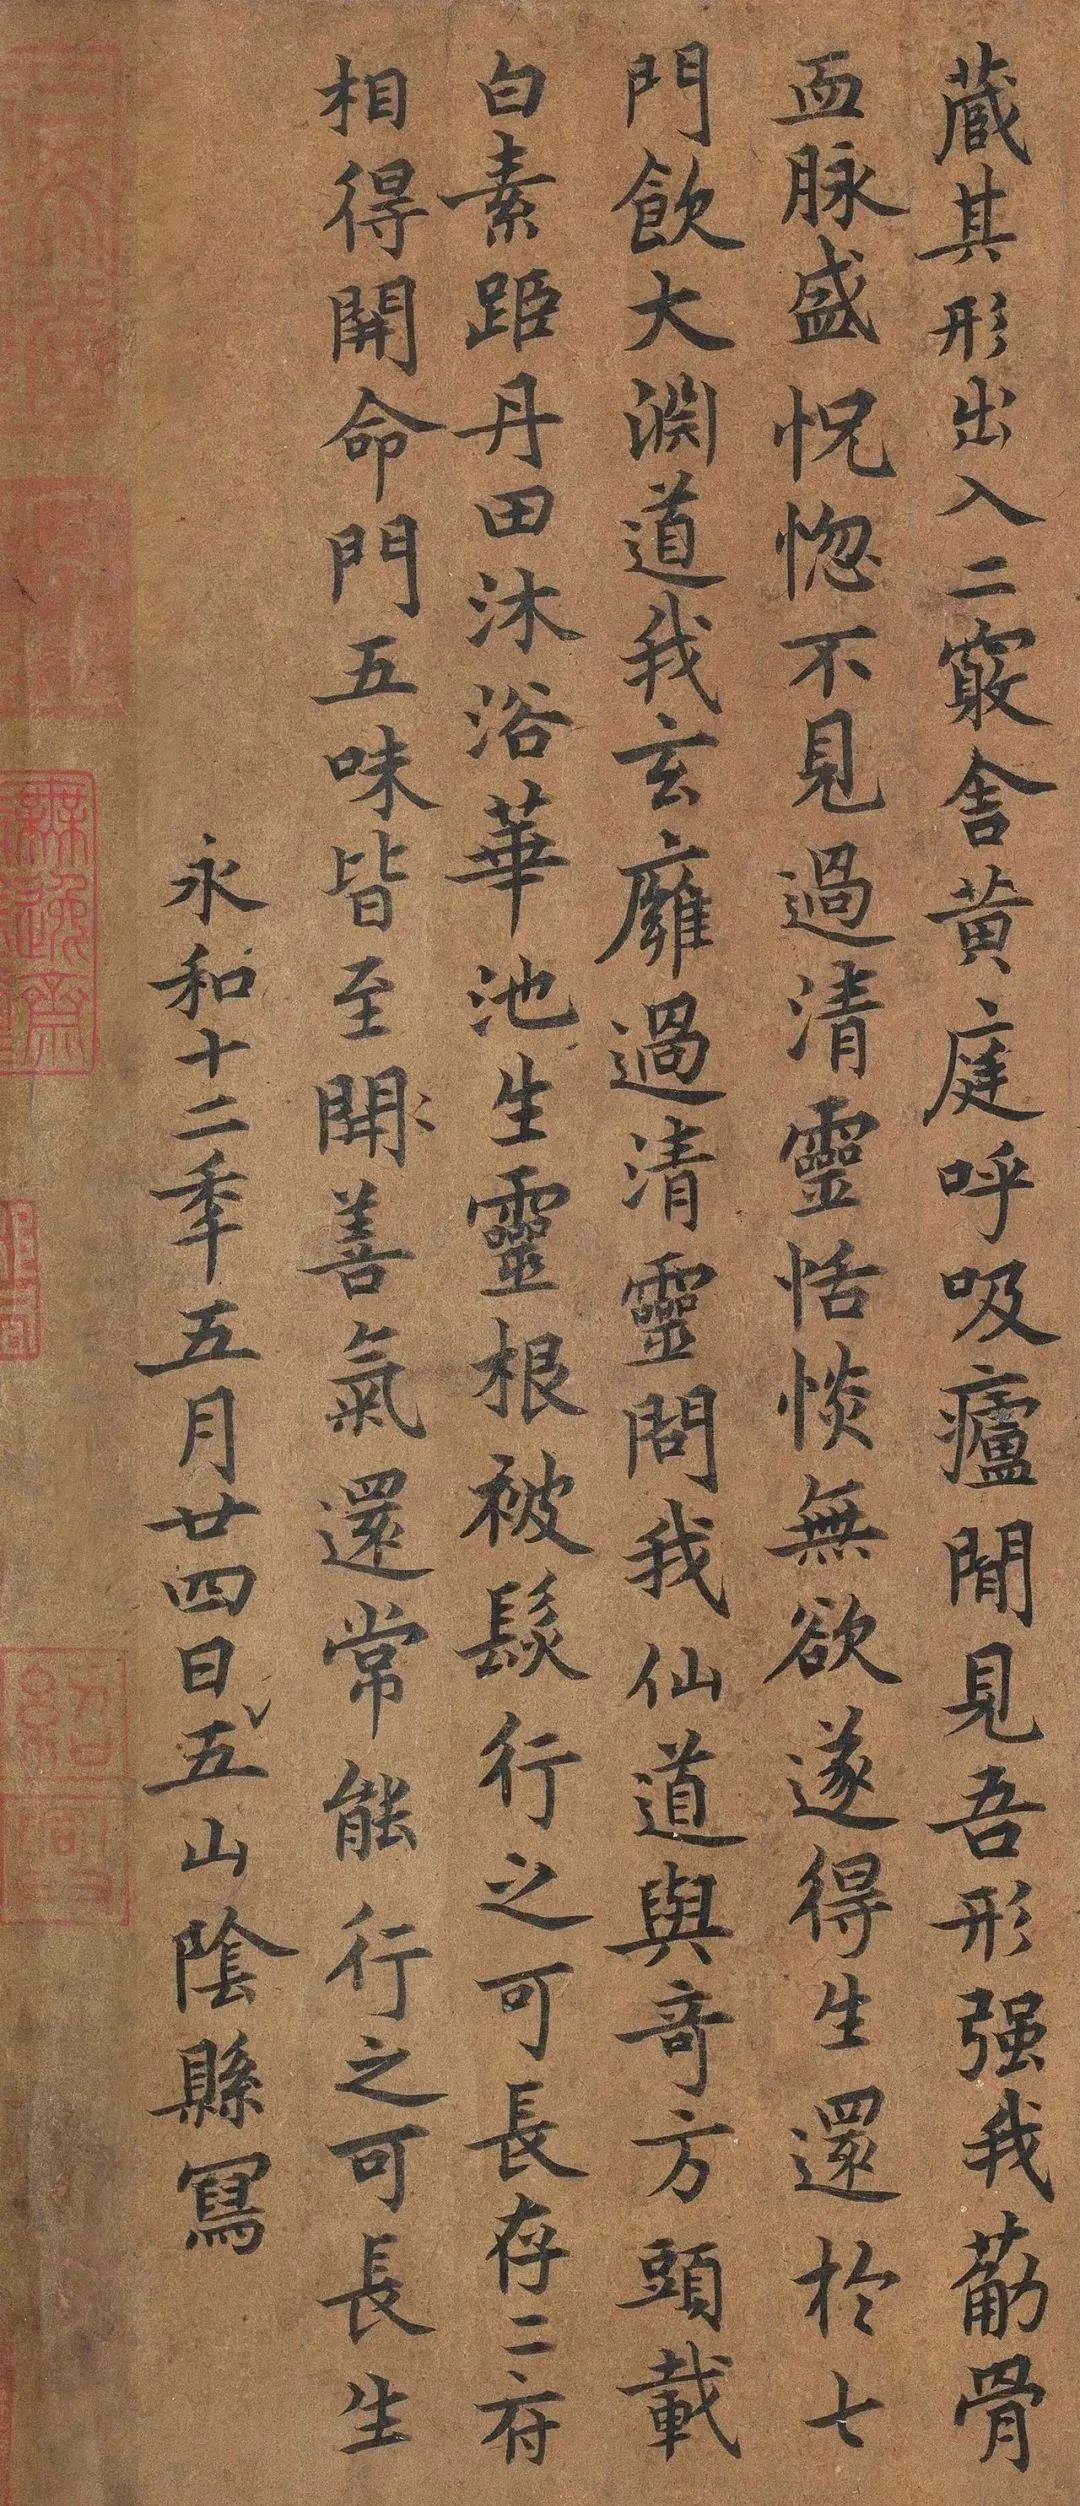 藏其形出入二竅舍黄庭呼吸廬間見吾形强我茐骨
血脉盛怳惚不見過清靈恬惔無欲遂得生還於七
門飲大淵道我玄廱過清靈問我仙道與奇方頭載
白素距丹田沐浴華池生靈根被髮行之可長存二府
相得開命門五味皆至開善氣還常能行之可長生
永和十二年五月廿四日五山陰縣寫